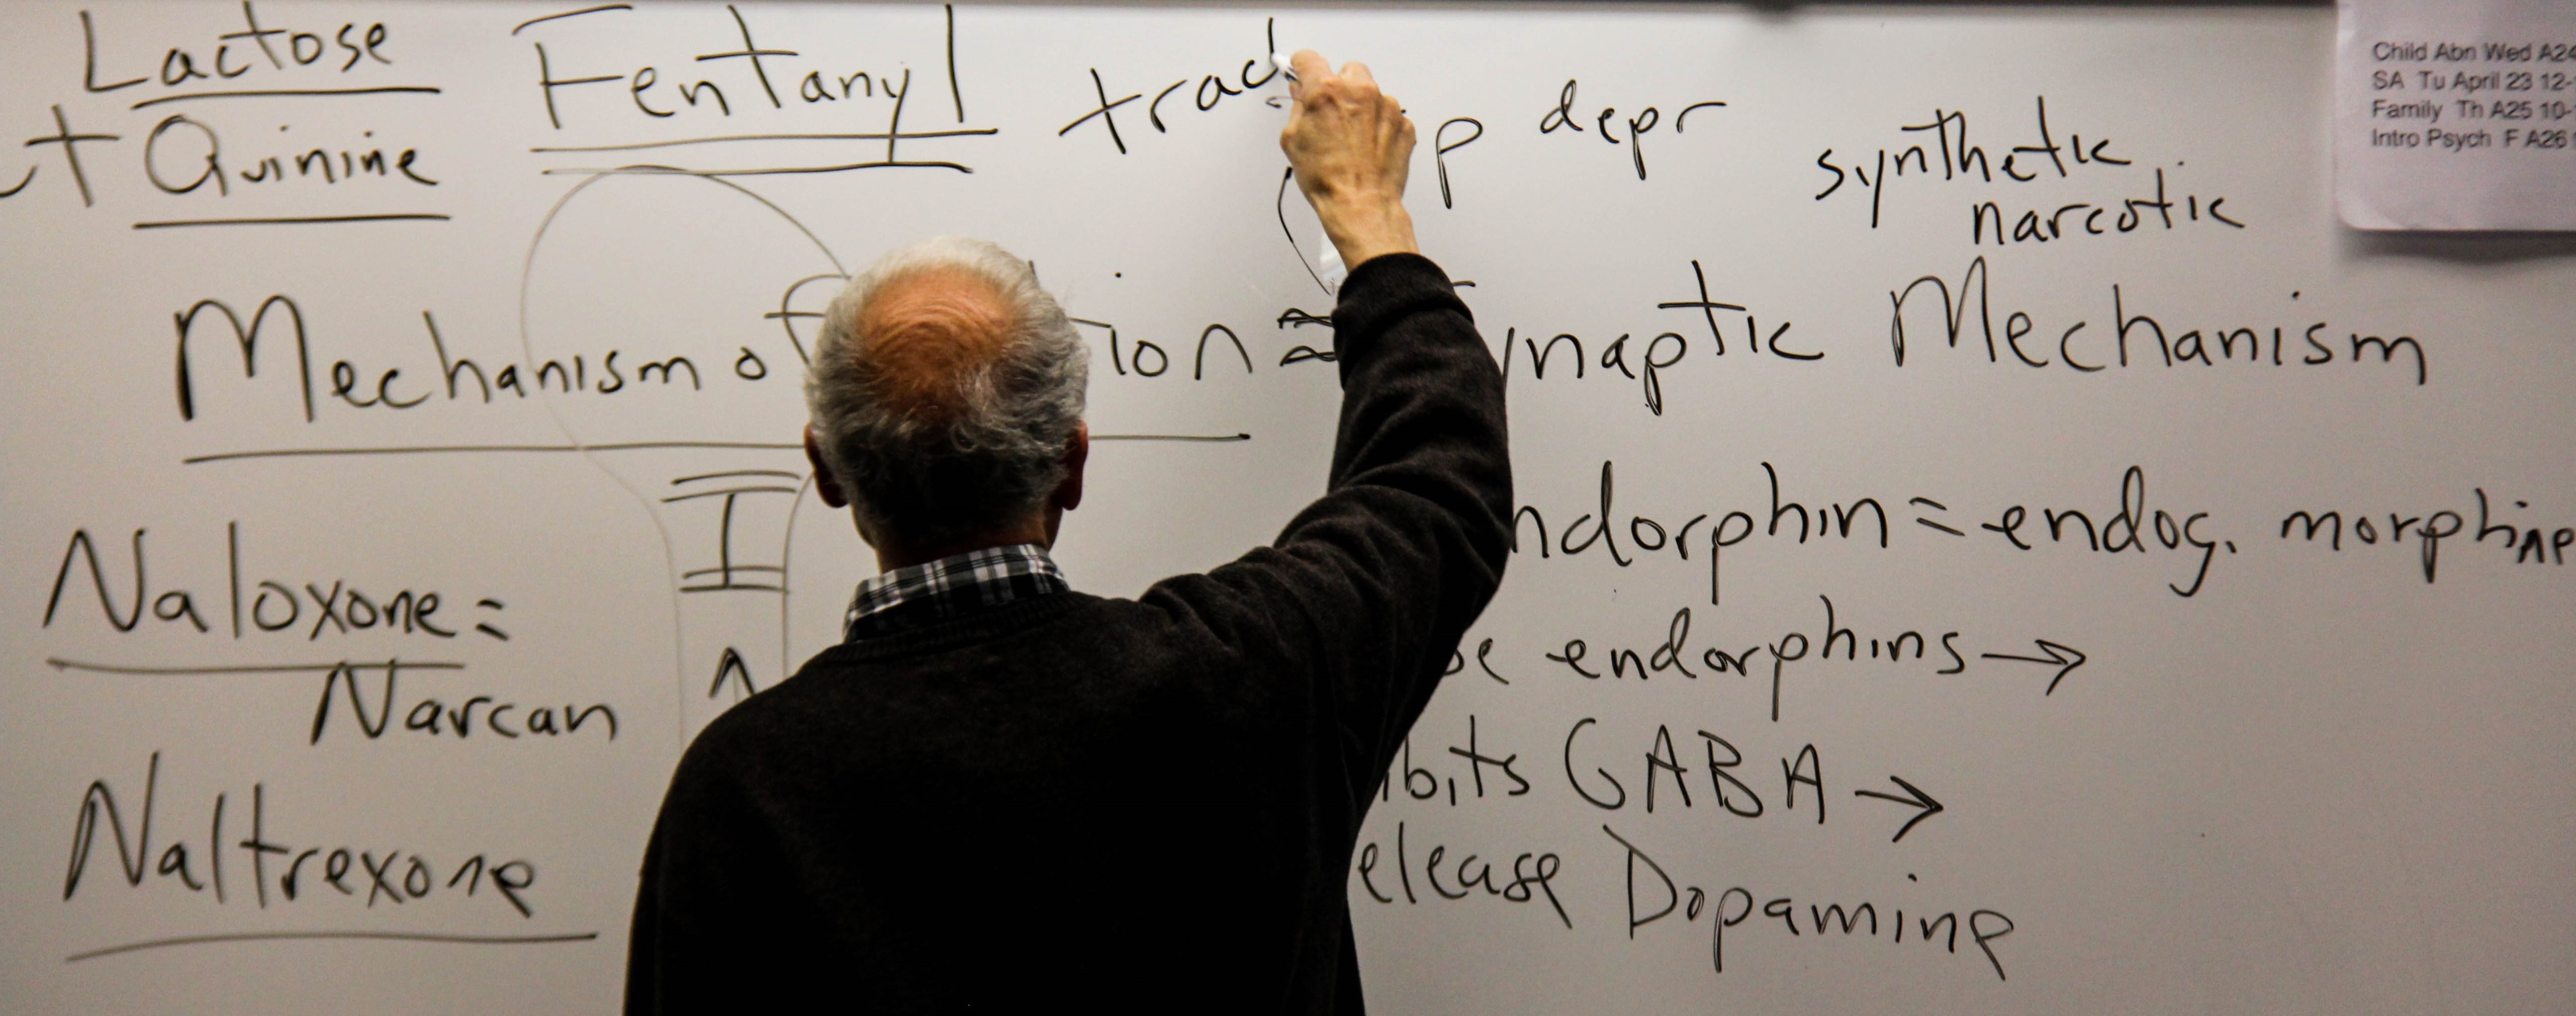 Lactose
+ Quinine
Fentanyl
p depr
synthetic
narcotic
Mechanism of ion ≈ ynaptic Mechanism
Naloxone =
Narcan
Naltrexone
ndorphin = endog. morphine
endorphins →
ibits GABA →
elease Dopamine
Child Abn Wed A24
SA Tu April 23 12-
Family Th A25 10-
Intro Psych F A26